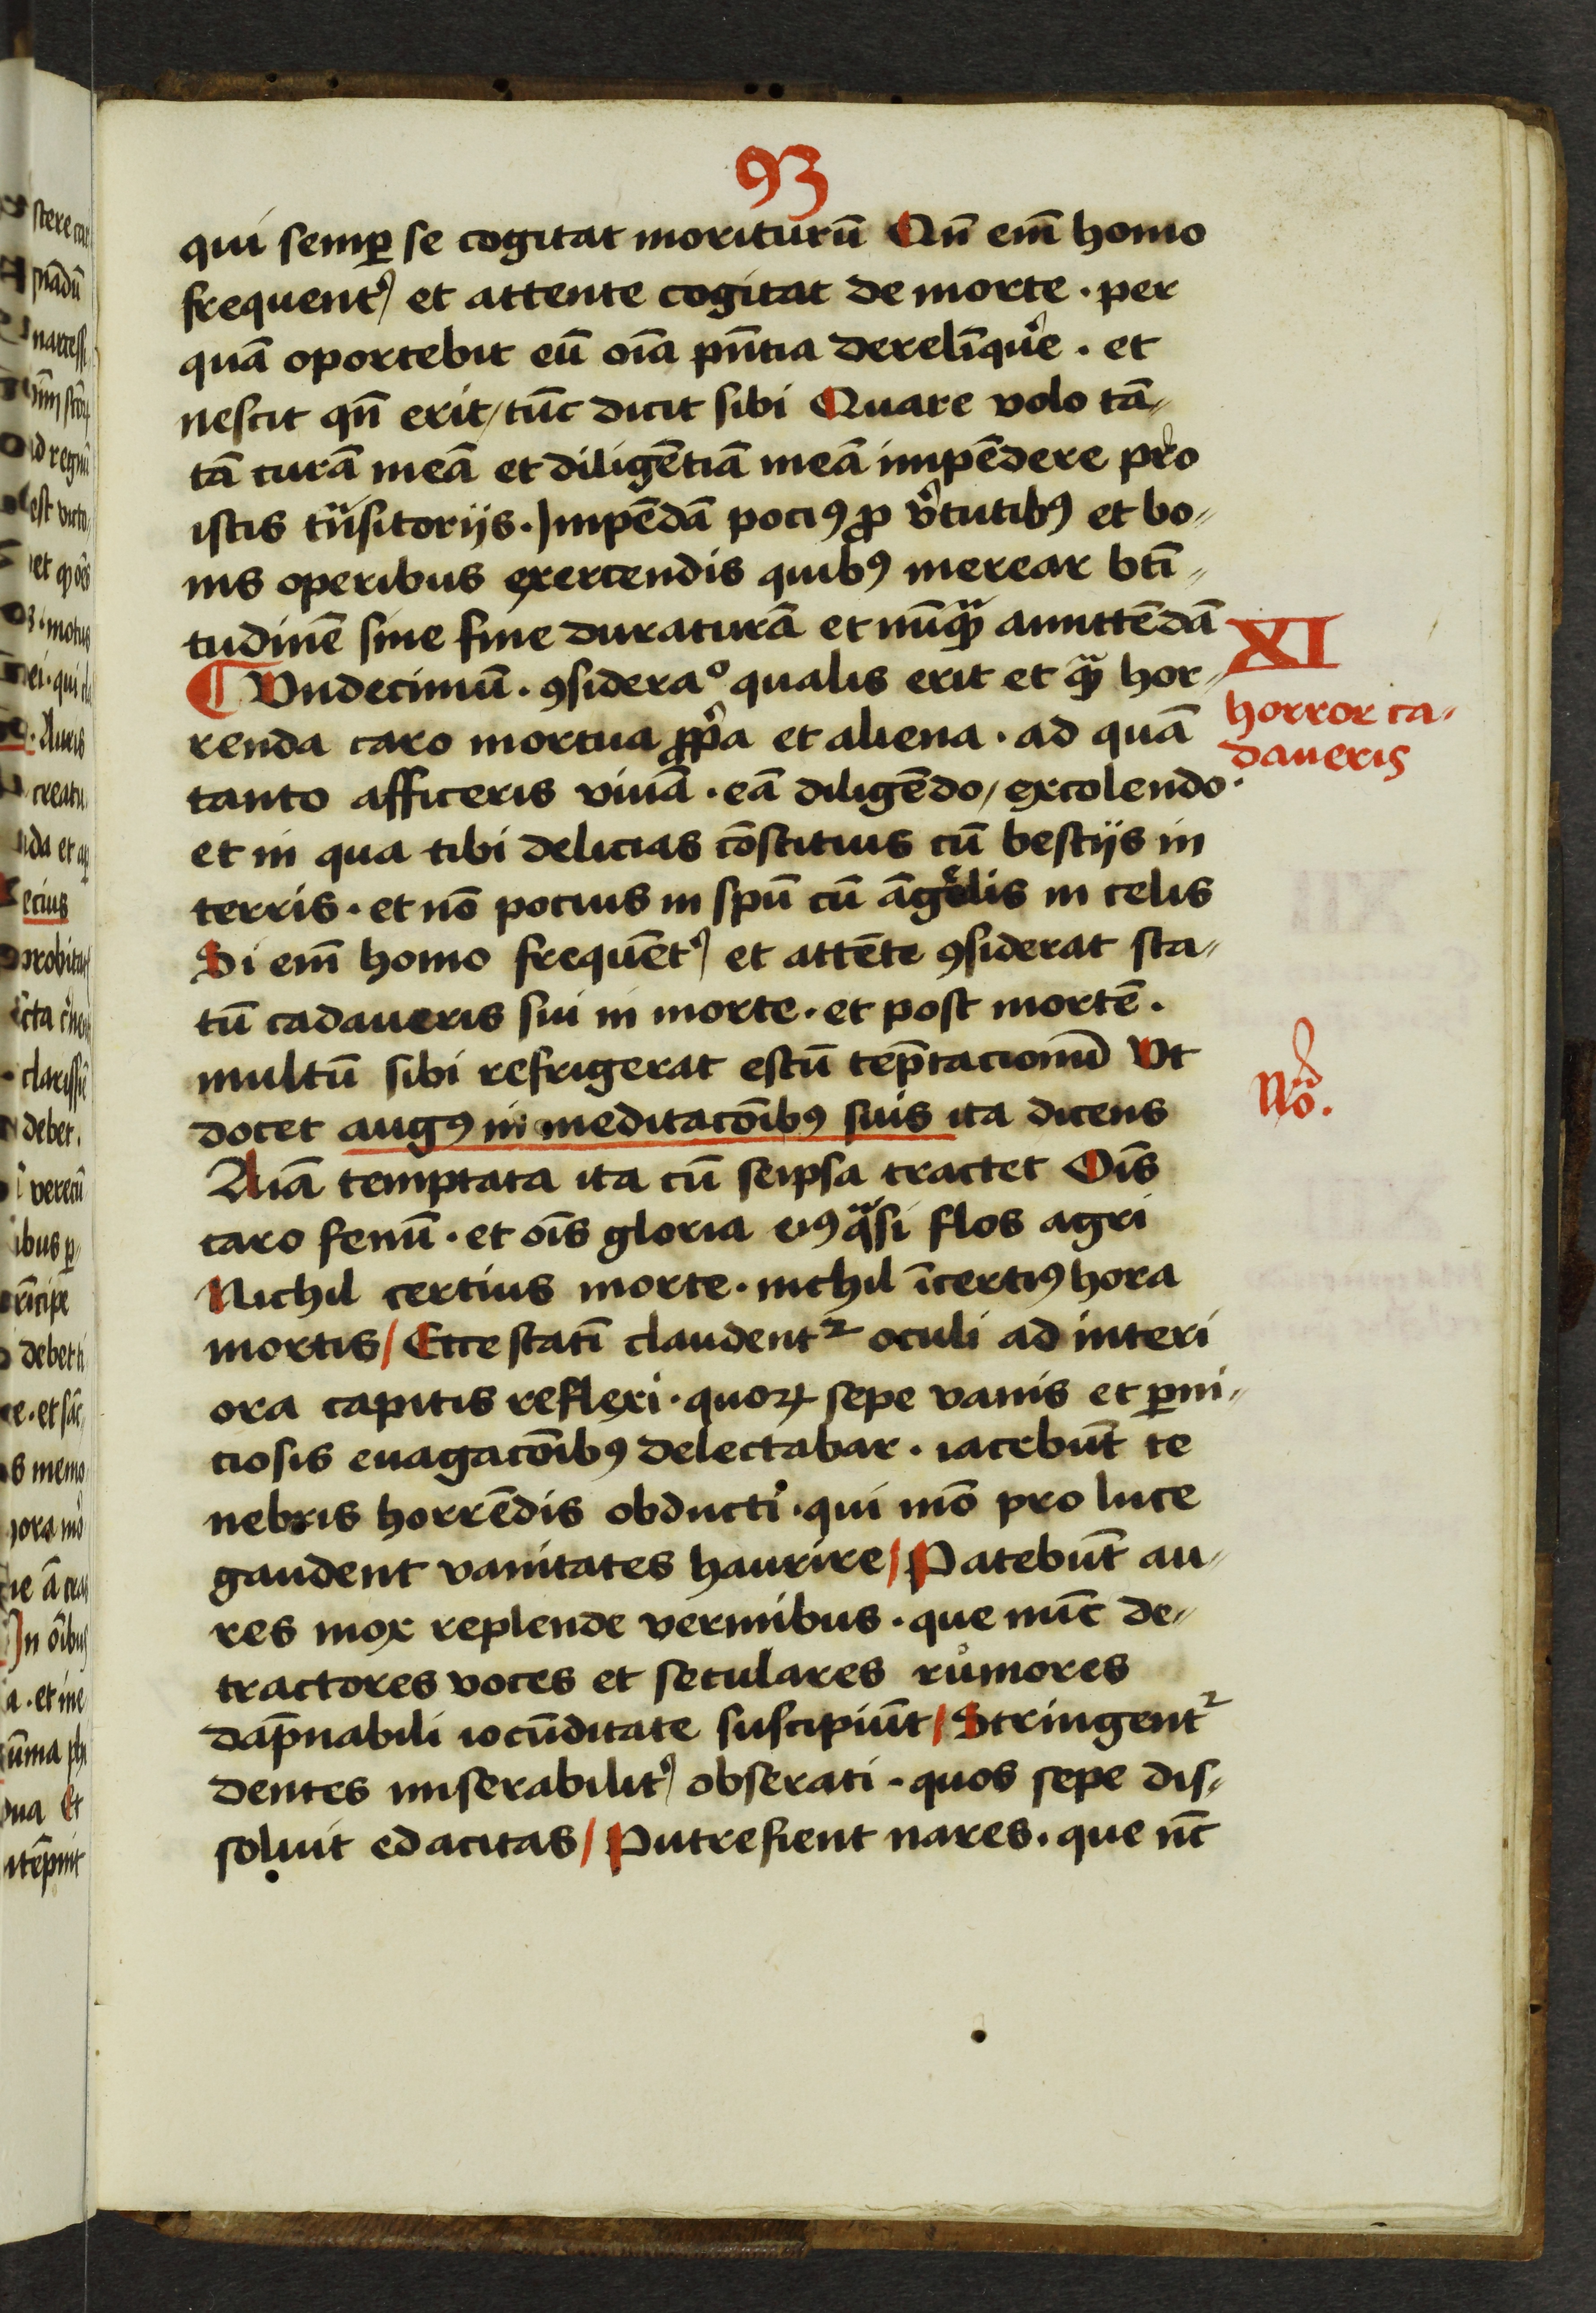 93
qui semꝑ se cogitat moriturū Qn̄ em̄ homo
frequent᷒ et attente cogitat de morte · per
quā oportebit eū oīa pn̄tia derelīqu᷒e · et
nescit qn̄ erit / tūc dicit sibi Quare volo tā„
tā curā meā et diligētiā meā impēdere pro
istis trāsitorijs · Jmpēdā pociꝰ ꝓ v᷒tutibꝰ et bo„
nis operibus exercendis quibꝰ merear btī„
tudinē sine fine duraturā et nūqᷓ amittēdā
¶ Vndecimū · ꝯsideraͦ qualis erit et qᷓ hor„
renda caro mortua ꝓp̄a et aliena · ad quā
tanto afficeris viuā · eā diligēdo / excolendo ·
et in qua tibi delicias cōstituis cū bestijs in
terris · et nō pocius in spū cū āgelis in celis
Si em̄ homo frequēt᷒ et attēte ꝯsiderat sta„
tū cadaueris sui in morte · et post mortē ·
multū sibi refrigerat estū tēptacionū Vt
docet augꝰ in meditacōibꝰ suis ita dicens
Aīa temptata ita cū seipsa tractet Oīs
caro fenū · et oīs gloria eiꝰ qᷓsi flos agri
Nichil certius morte · nichil īcertiꝰ hora
mortis / Ecce statī claudentᷣ oculi ad interi
ora capitis reflexi · quoꝝ sepe vanis et ꝑni„
ciosis euagacōibꝰ delectabar · iacebūt te
nebris horrēdis obducti · qui mō pro luce
gaudent vanitates haurire / Patebūt au„
res mox replende vermibus · que nūc de„
tractores voces et seculares růmores
dāpnabili iocūditate suscipiūt / Stringentᷣ
dentes miserabilit᷒ obserati · quos sepe dis„
soluit edacitas / Putrefient nares · que nc̄
XI
horror ca„
daueris
No.